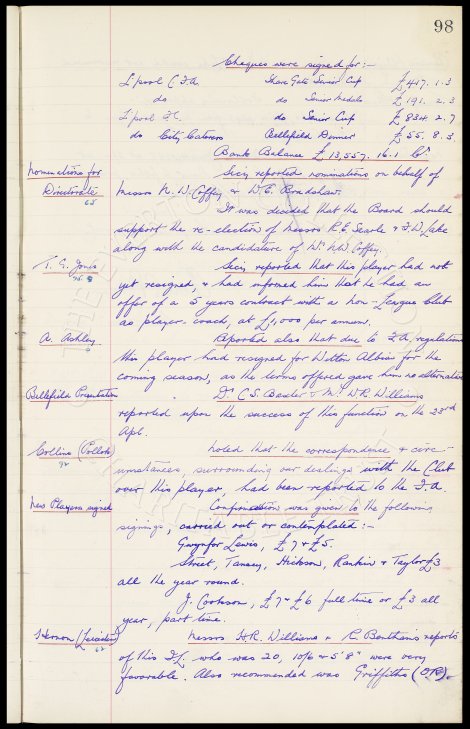 98
Cheques were signed for:-
L'pool C.F.A. Share Gate Senior Cup £417. 1. 3
do do Senior Medals £191. 2. 3
L'pool F.C. do Senior Cup £834. 2. 7
do City Caterers Bellefield Dinner £55. 8. 3
Bank Balance £13,557. 16. 1 Cr
Nominations for Directorate 65
Secy reported nominations on behalf of
Messrs N. W. Coffey & W. C. Bradshaw.
It was decided that the Board should
support the re-election of Messrs R. E. Searle & F. D. Lake
along with the candidature of Mr. N.W. Coffey.
T. G. Jones
Secy reported that this player had not
yet resigned, & had informed him that he had an
offer of a 5 years contract with a non-League Club
as player-coach, at £1,000 per annum.
A. Ashley
Reported also that due to F.A. regulations
this player had resigned for Witton Albion for the
coming season, as the terms offered gave him no alternative
Bellefield Presentation
Dr C. S. Baxter & Mr W. R. Williams
reported upon the success of this function on the 23rd
Apl.
Collins (Pollok) 92
Noted that the correspondence & circ-
umstances, surrounding our dealings with the Club
over this player, had been reported to the F.A.
New Players signed
Confirmation was given to the following
signings, carried out or contemplated:-
Gwynfor Lewis, £7 & £5.
Street, Tansey, Hickson, Rankin & Taylor £3
all the year round.
J. Cookson, £7 & £6 full time or £3 all
year, part time.
(Leicester) 62
Messrs H.R. Williams & R. Benthams reports
of this I.L. who was 20, 10/6 & 5'8" were very
favorable. Also recommended was Griffiths (OR).